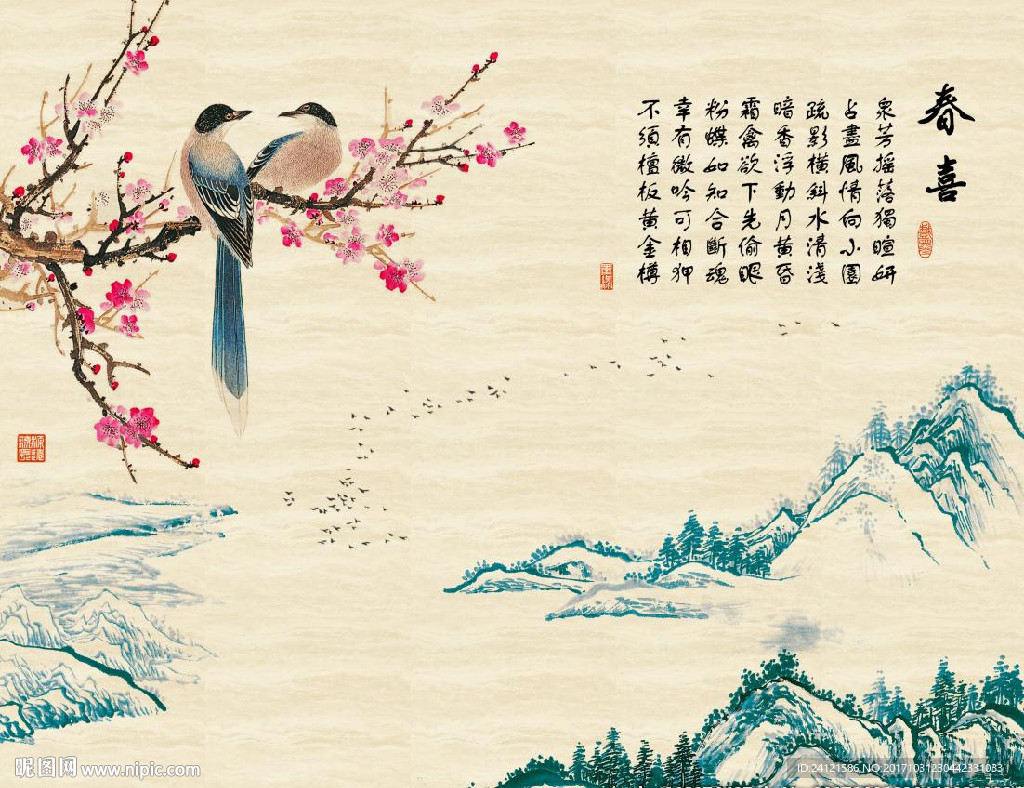 春喜
衆芳摇落獨暄妍
占盡風情向小園
疏影橫斜水清淺
暗香浮動月黃昏
霜禽欲下先偷眼
粉蝶如知合斷魂
幸有微吟可相狎
不須檀板黃金樽
昵图网 www.nipic.com
ID:24121586 NO:20171031230442331033